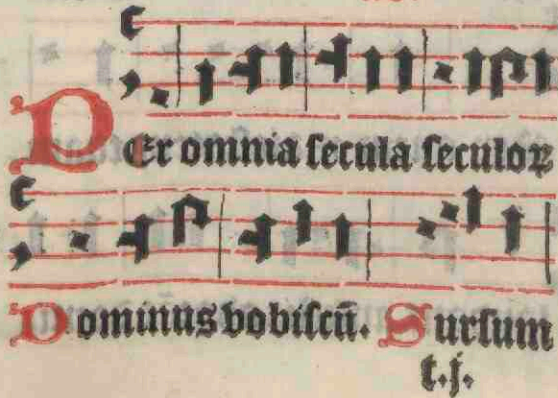 Per omnia ſecula ſeculoꝝ
Dominus vobiſcū. Surſum
t.j.